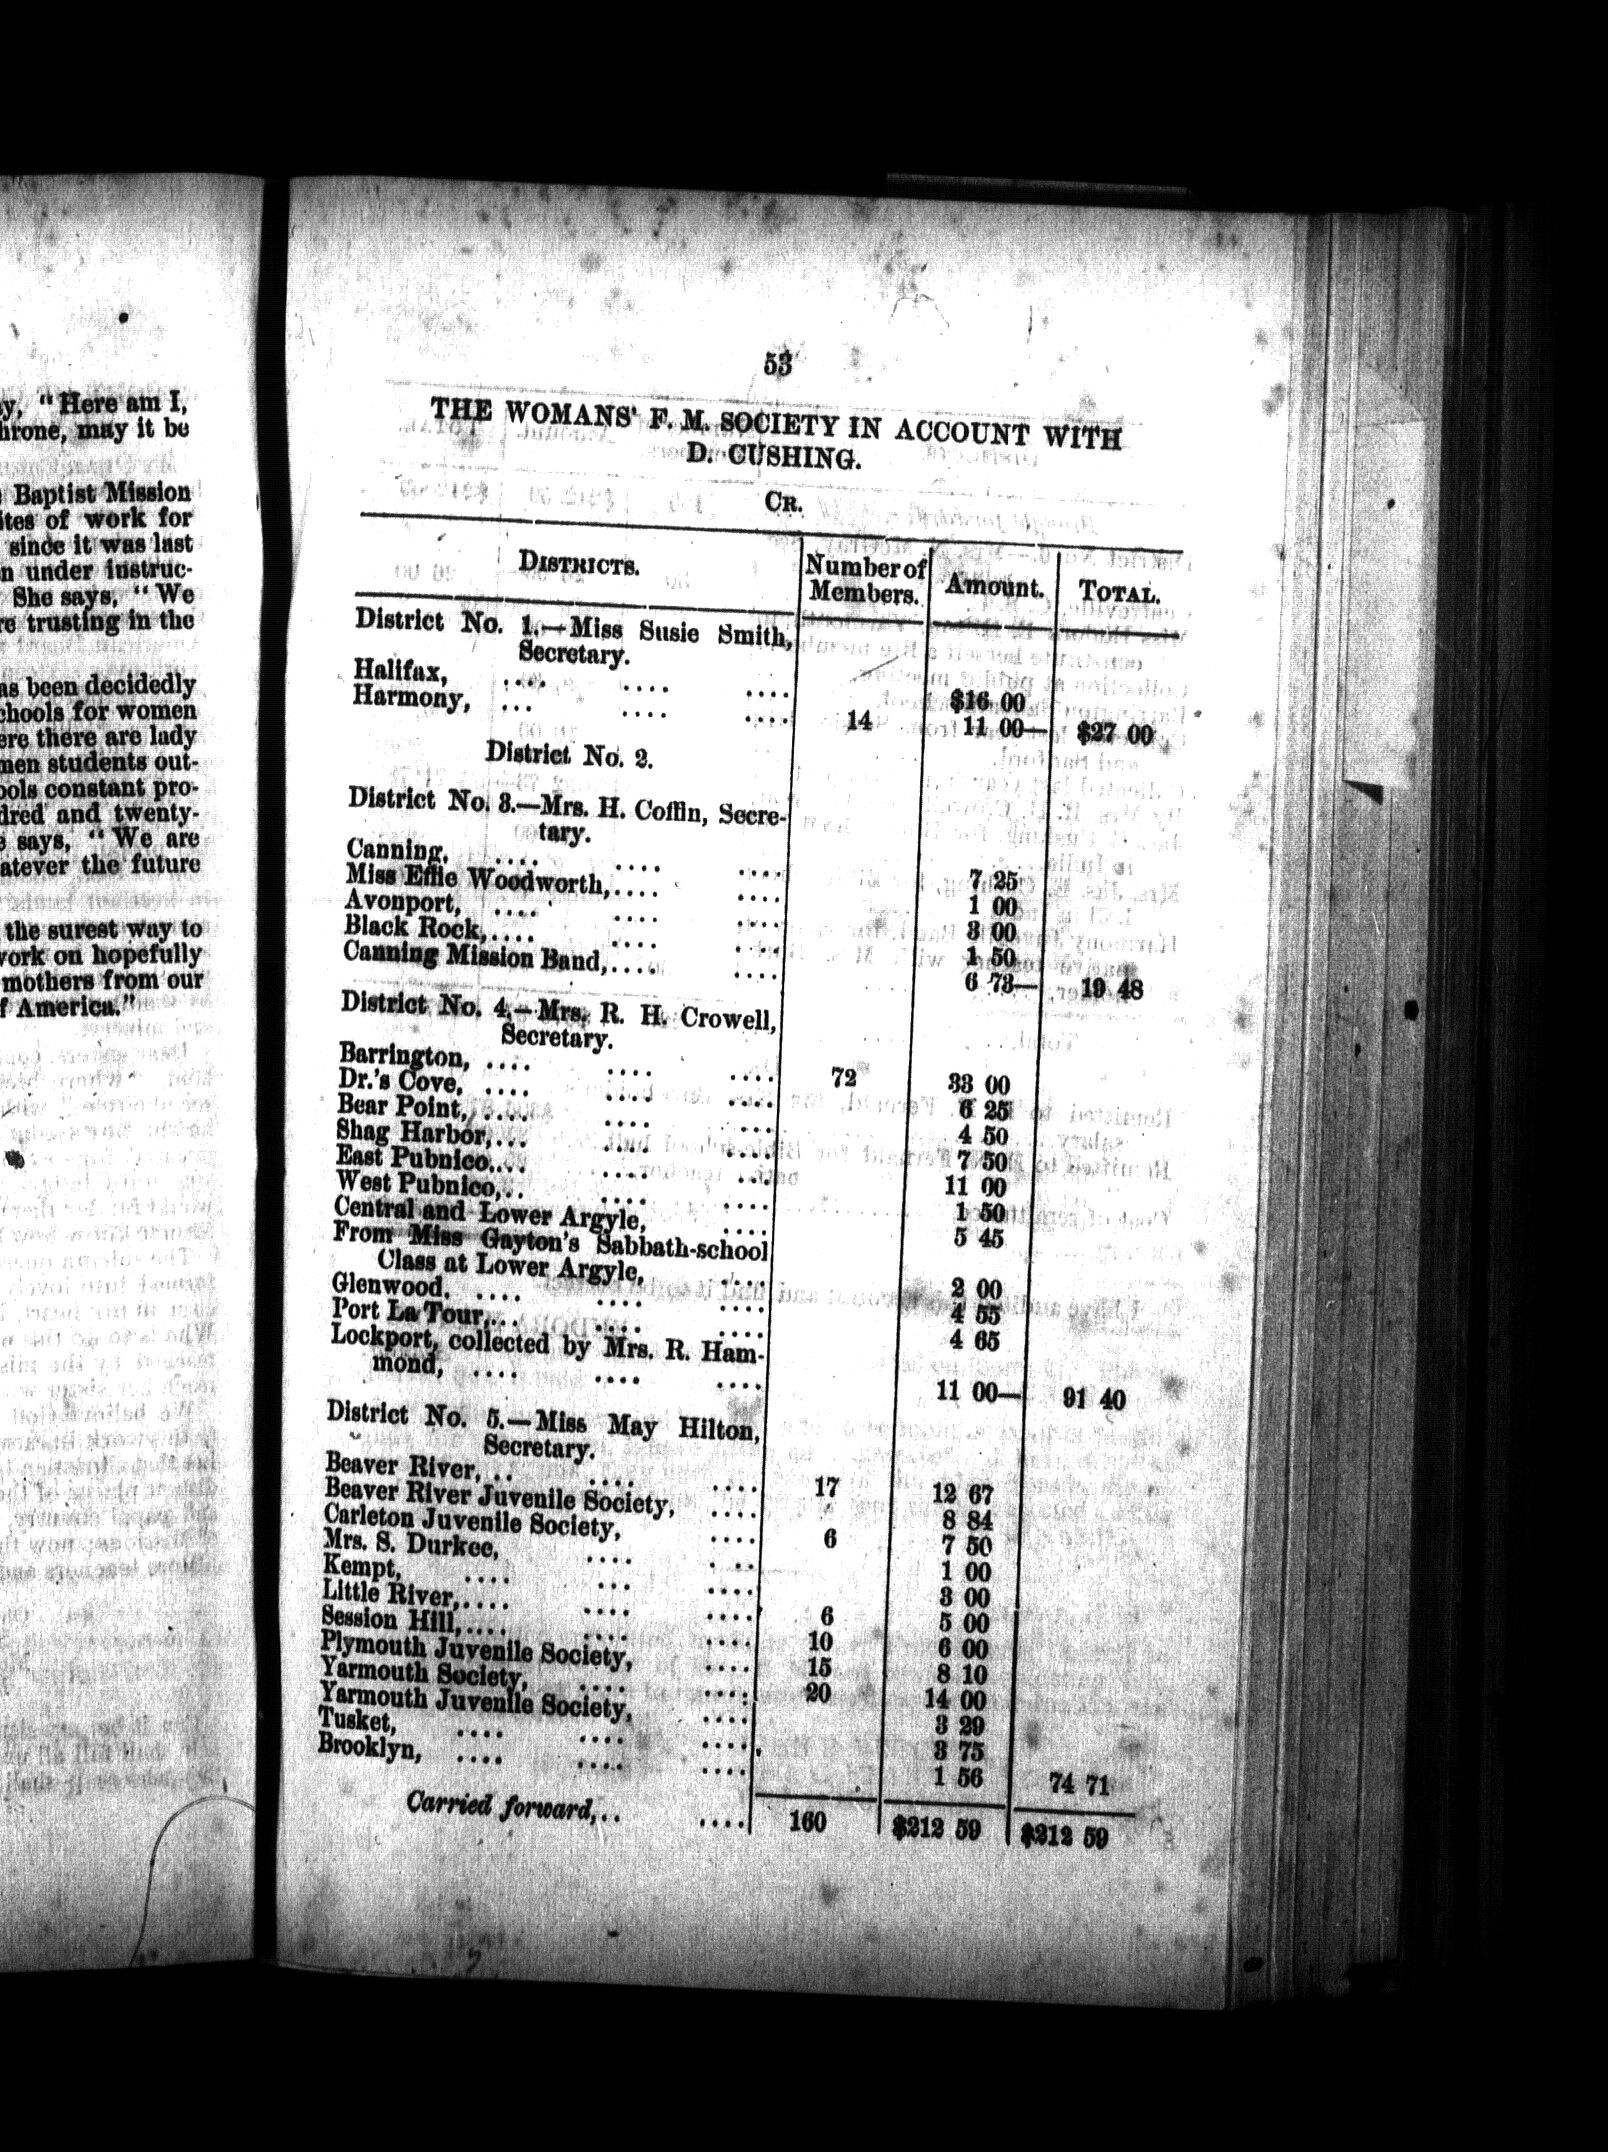 y, "Here am I,
hrone, may it be
Baptist Mission
ites of work for
since it was last
n under instruc-
She says, "We
re trusting in the
as been decidedly
chools for women
ere there are lady
men students out-
ools constant pro-
dred and twenty-
says, "We are
atever the future
the surest way to
work on hopefully
mothers from our
f America."
53
THE WOMANS' F. M. SOCIETY IN ACCOUNT WITH
D. CUSHING.
CR.
DISTRICTS. Number of Members. Amount. TOTAL.
District No. 1.—Miss Susie Smith,
Secretary.
Halifax, .... .... .... $16 00
Harmony, ... .... .... 14 11 00— $27 00
District No. 2.
District No. 3.—Mrs. H. Coffin, Secre-
tary.
Canning, .... .... .... 7 25
Miss Effie Woodworth,.... .... 1 00
Avonport, .... .... .... 3 00
Black Rock,.... .... .... 1 50
Canning Mission Band,.... .... 6 73— 19 48
District No. 4.—Mrs. R. H. Crowell,
Secretary.
Barrington, .... .... .... 72 33 00
Dr.'s Cove, .... .... .... 6 25
Bear Point, .... .... ... 4 50
Shag Harbor,... .... .... 7 50
East Pubnico.... .... .... 11 00
West Pubnico,.. .... .... 1 50
Central and Lower Argyle, .... 5 45
From Miss Gayton's Sabbath-school
Class at Lower Argyle, .... 2 00
Glenwood. .... .... .... 4 55
Port La Tour,... .... .... 4 65
Lockport, collected by Mrs. R. Ham-
mond, .... .... .... 11 00— 91 40
District No. 5.—Miss May Hilton,
Secretary.
Beaver River, .. .... .... 17 12 67
Beaver River Juvenile Society, .... 8 84
Carleton Juvenile Society, .... 6 7 50
Mrs. S. Durkee, .... .... 1 00
Kempt, .... ... .... 3 00
Little River,.... .... .... 6 5 00
Session Hill,.... .... .... 10 6 00
Plymouth Juvenile Society, .... 15 8 10
Yarmouth Society, .... .... 20 14 00
Yarmouth Juvenile Society, .... 3 29
Tusket, .... .... .... 3 75
Brooklyn, .... .... .... 1 56 74 71
Carried forward,.. .... 160 $212 59 $212 59